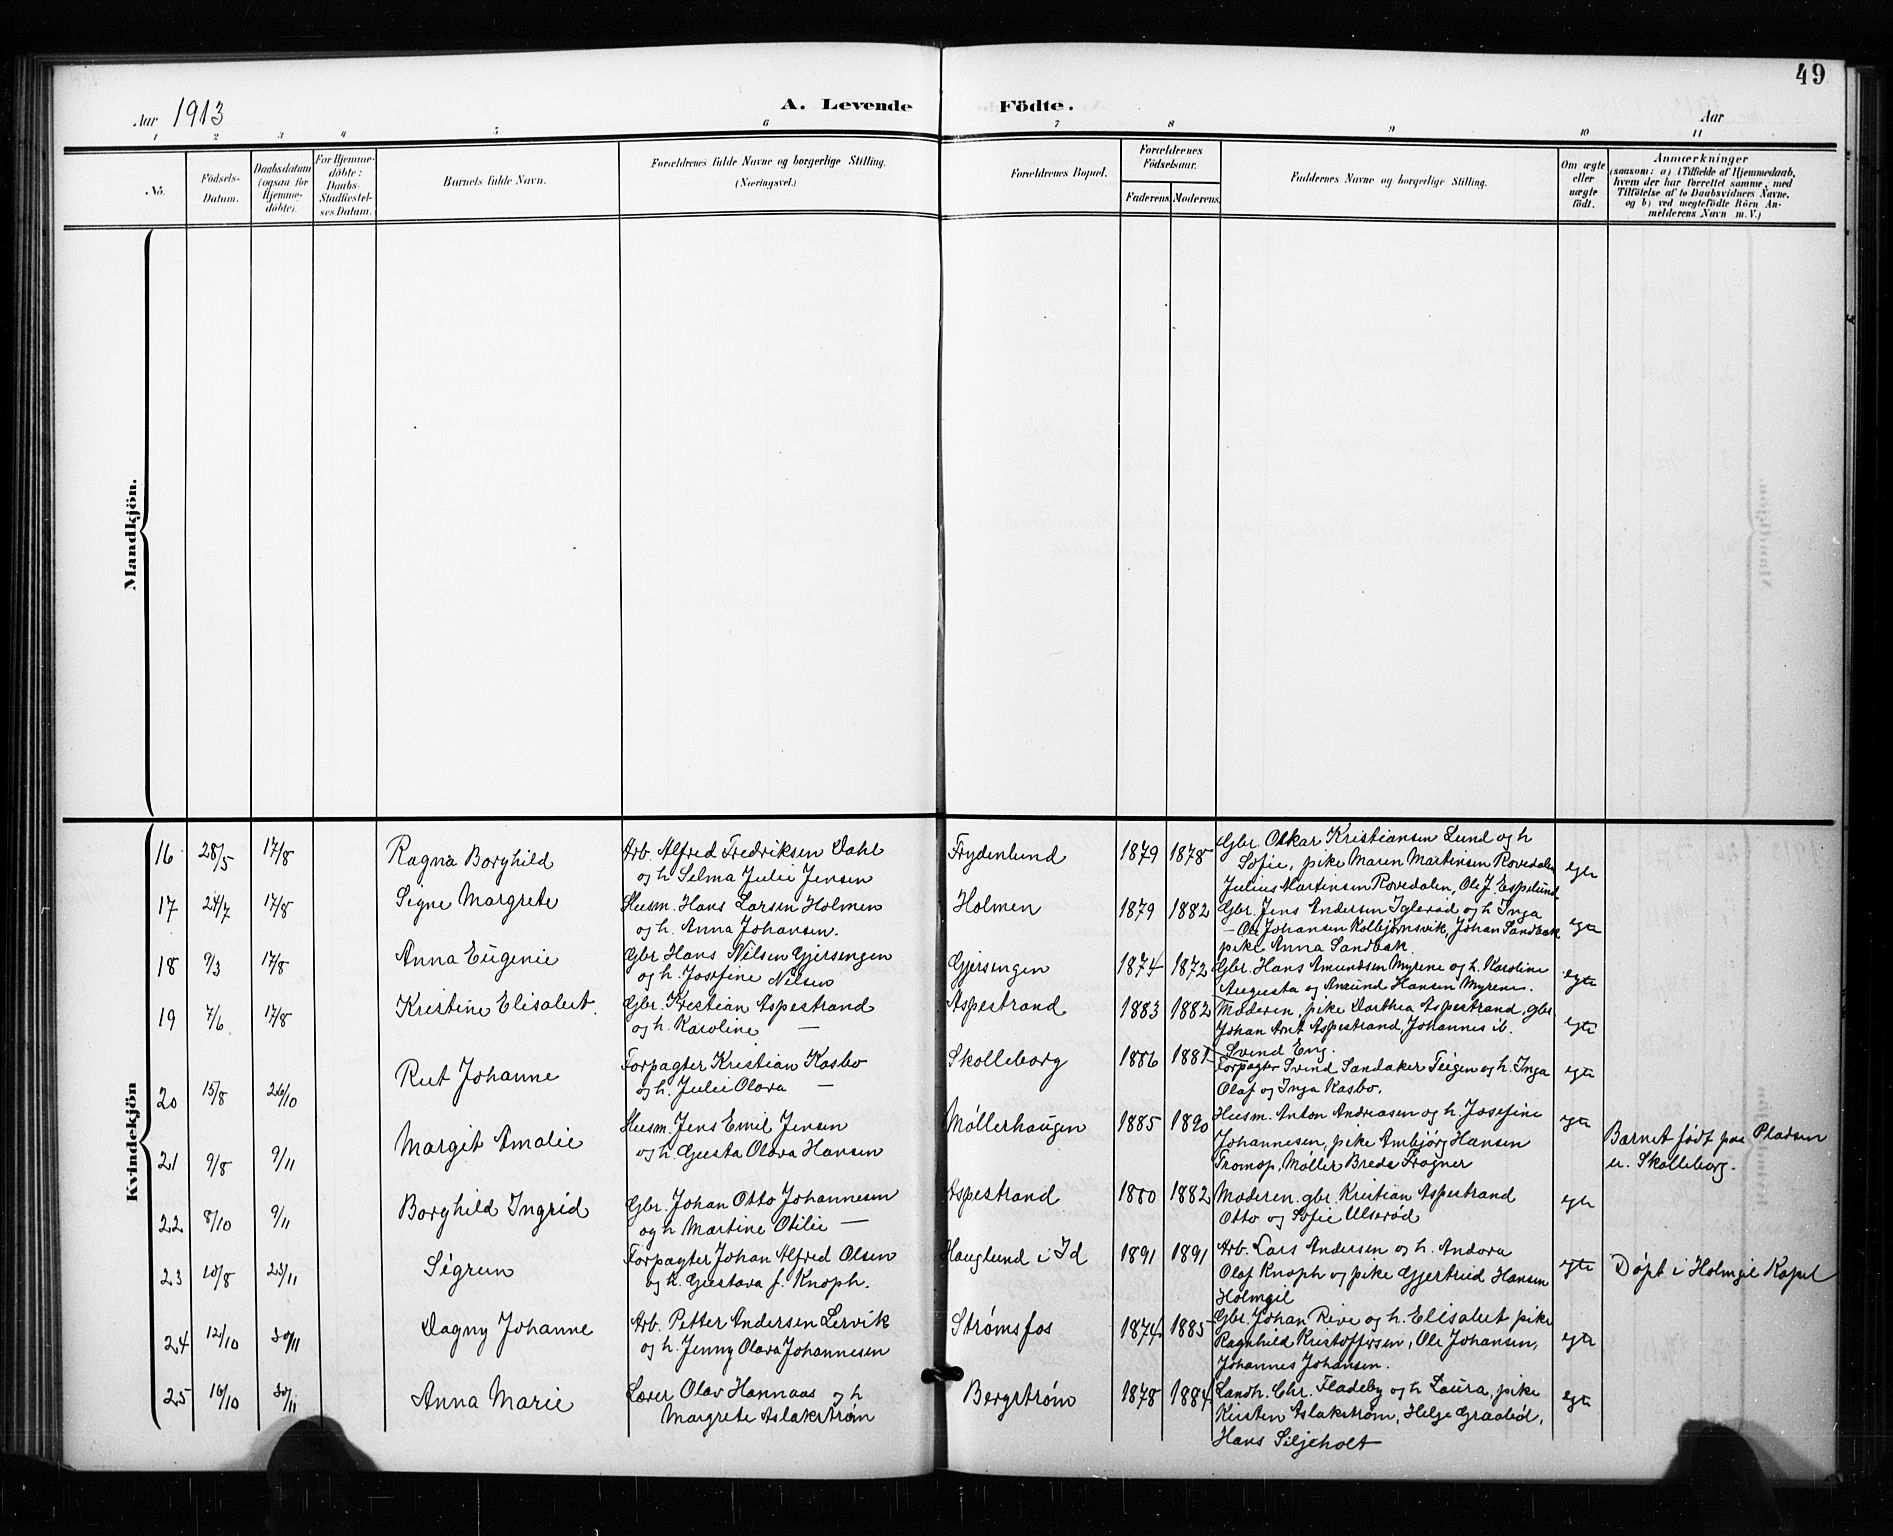 49
Aar 1913
A. Levende Födte.
Aar
1 2 3 4 5 6 7 8 9 10 11
No.
Födsels-Datum.
Daabsdatum (ogsaa for Hjemme-döbte).
For Hjemme-döbte: Daabs-Stadfæstel-ses Datum.
Barnets fulde Navn.
Forældrenes fulde Navne og borgerlige Stilling. (Næringsvei.)
Forældrenes Bopæl.
Forældrenes Födselsaar.
Faderens. Moderens.
Faddernes Navne og borgerlige Stilling.
Om ægte eller uægte födt.
Anmærkninger
(saasom: a) i Tilfælde af Hjemmedaab, hvem der har forrettet samme, med Tilföielse af to Daabsvidners Navne, og b) ved uægtefödte Börn An-melderens Navn m. V.)
Mandkjön.
Kvindekjön
16 28/5 17/8 Ragna Borghild
Arb. Alfred Fredriksen Dahl
og h Selma Julie Jensen
Frydenlund 1879 1878
Gbr. Oskar Kristiansen Lund og h
Sofie, pike Maren Martinsen Rovedalen
Julius Martinsen Rovedalen, Ole J. Espelund
egte
17 24/7 17/8 Signe Margrete
Husm. Hans Larsen Holmen
og h. Anna Johansen.
Holmen 1879 1882
Gbr. Jens Andersen Iglerød og h Inga
– Ole Johansen Kolbjørnsvik, Johan Sandbæk
pike Anna Sandbæk
egte
18 9/3 17/8 Anna Eugenie
Gbr Hans Nilsen Gjersengen
og h. Josefine Nilsen
Gjersengen 1874 1872
Gbr. Hans Amundsen Myrene og h. Karoline
Augusta og Amund Hansen Myrene.
egte
19 7/6 17/8 Kristine Elisabet.
Gbr. Kristian Aspestrand
og h. Karoline —
Aspestrand 1883 1882
Moderen, pike Dorthea Aspestrand, gbr.
Johan Arnt Aspestrand, Johannes ib.
Svend Eng.
egte
20 15/8 26/10 Rut Johanne
Forpagter Kristian Kasbo
og h. Julie Olava —
Skolleborg 1886 1881
Forpagter Svend Sandaker Teigen og h. Inga
Olaf og Inga Kasbo.
egte
21 9/8 9/11 Margit Amalie
Husm. Jens Emil Jensen
og h. Gusta Olava Hansen
Møllerhaugen 1885 1890
Husm. Anton Andreasen og h. Josefine
Johannesen, pike Ambjørg Hansen
Tromop, Møller Brede Fragner
egte
Barnet født paa Pladsen
u. Skolleborg.
22 8/10 9/11 Borghild Ingrid
Gbr. Johan Otto Johannesen
og h Martine Otilie —
Aspestrand 1880 1882
Moderen. gbr. Kristian Aspestrand
Otto og Sofie Ulserød
egte
23 10/8 23/11 Sigrun
Forpagter Johan Alfred Olsen
og h. Gustava f. Knoph.
Hauglund i Id 1891 1891
Arb. Lars Andersen og h. Andora
Olaf Knoph og pike Gjertrud Hansen
Holmgil
egte
Døpt i Holmgil Kapel
24 12/10 30/11 Dagny Johanne
Arb. Petter Andersen Lervik
og h. Jenny Olava Johannesen
Strømsfos 1874 1885
Gbr. Johan Rive og h. Elisabet pike
Ragnhild Kristoffersen, Ole Johansen,
Johannes Johansen.
egte
25 16/10 30/11 Anna Marie
Lærer Olav Hannaas og h
Margrete Aslakstrøm
Bergstrøm 1878 1884
Landh. Chr. Fladeby og h Laura, pike
Kirsten Aslakstrøm, Helge Graabøl,
Hans Siljeholt
egte